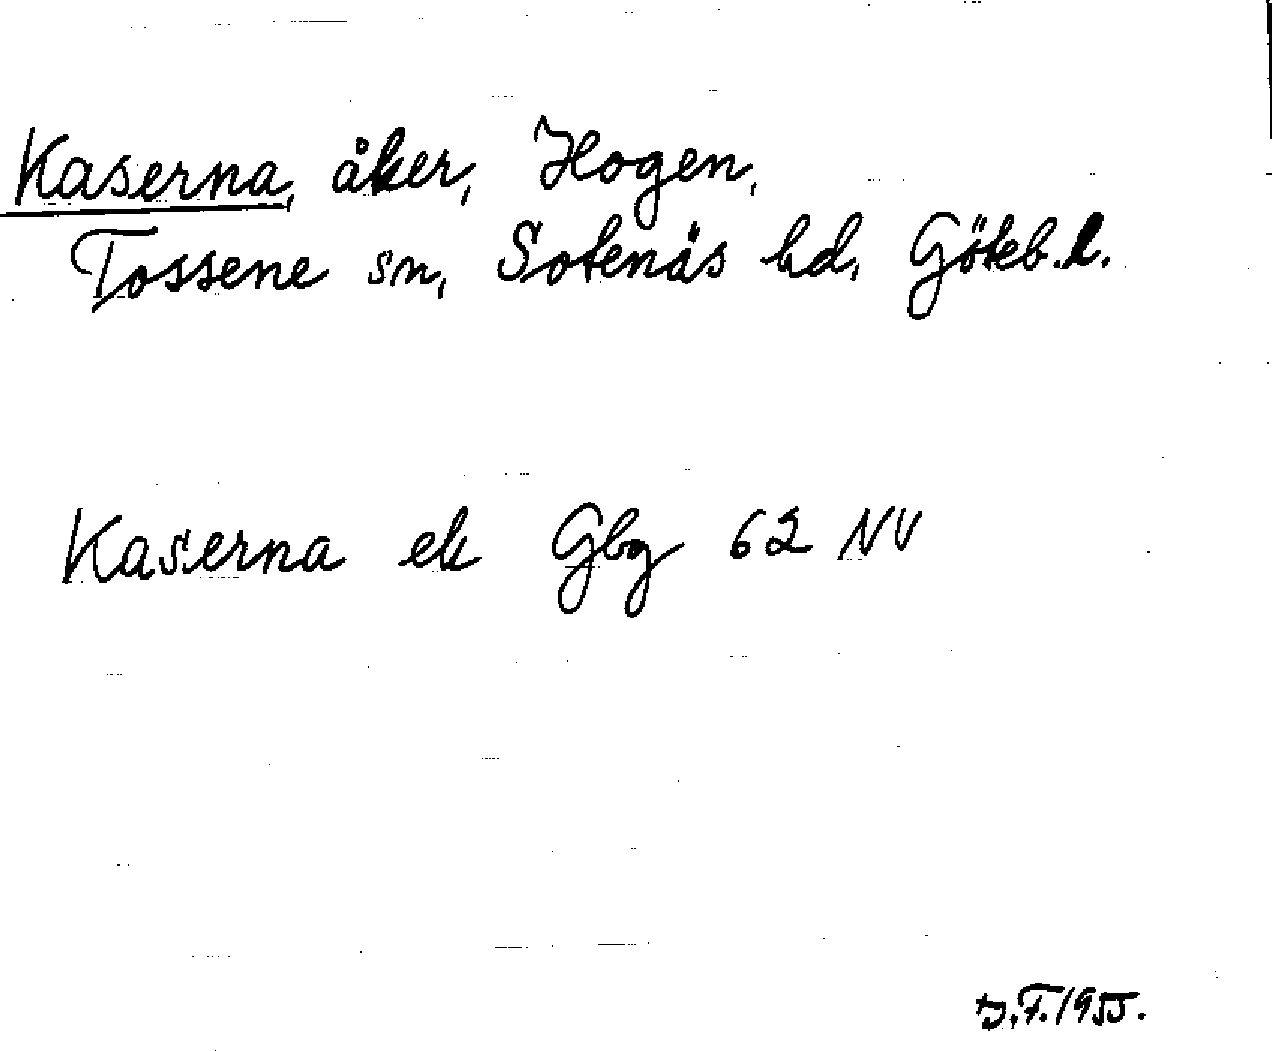 Kaserna, åker, Hogen,
Tossene sn, Sotenäs hd, Göteb. l.
Kaserna ek Gbg 62 NV
F. 1955.